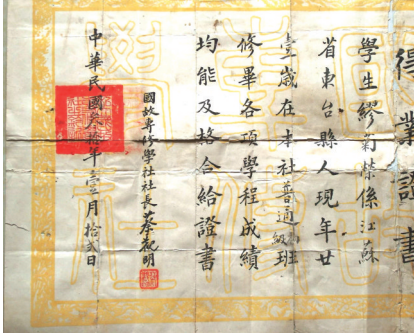 得業證書
學生繆菊榮係江蘇
省東台縣人現年廿
壹歲在本社普通級班
修畢各項學程成績
均能及格合給證書
國故專修學社社長蔡觀明
中華民國叁拾年壹月拾貳日